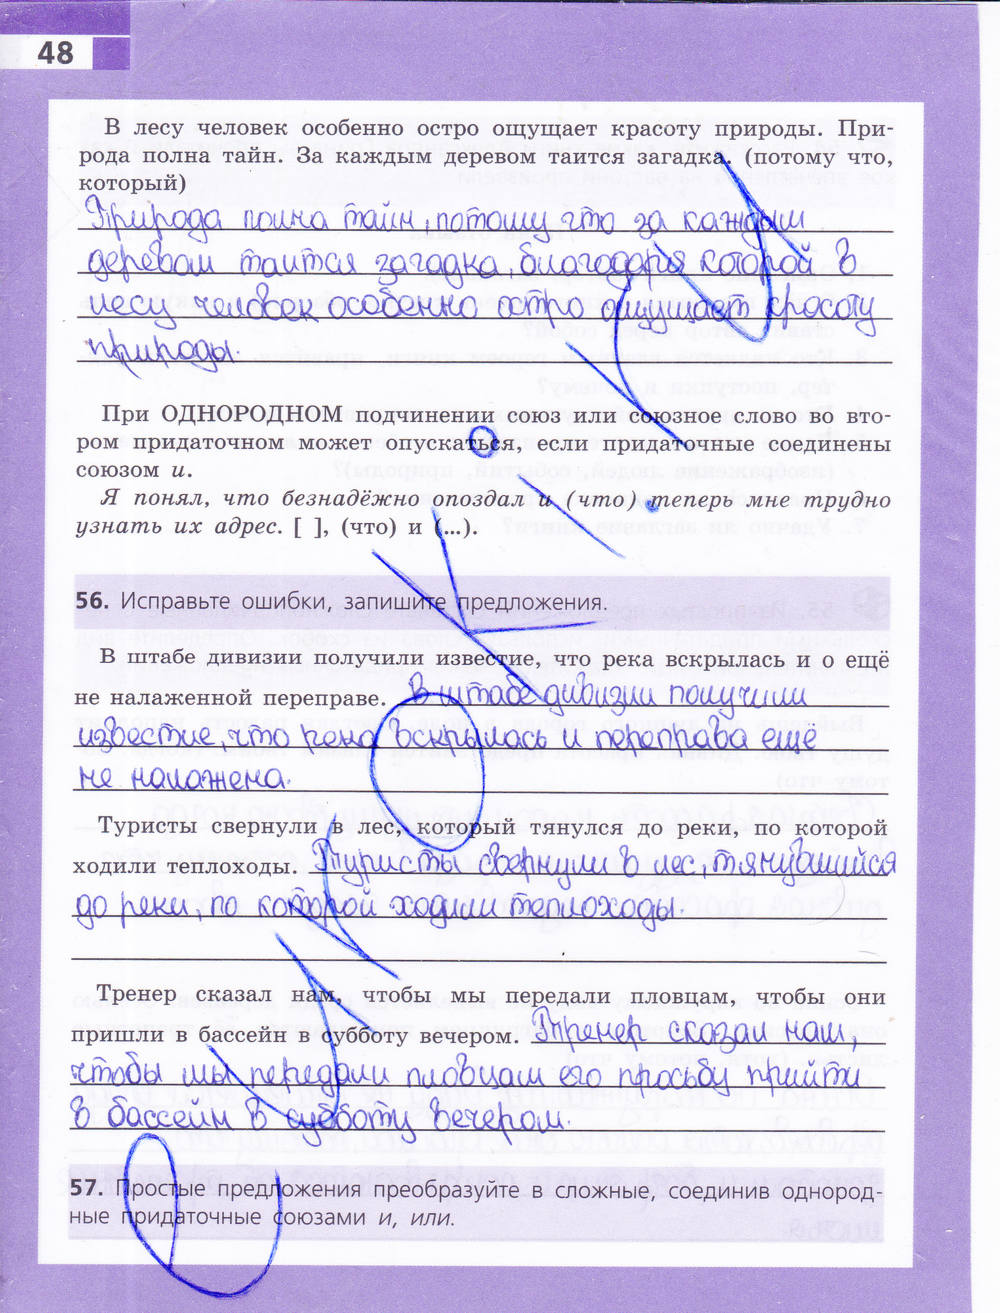 48
В лесу человек особенно остро ощущает красоту природы. При-
рода полна тайн. За каждым деревом таится загадка. (потому что,
который)
Природа полна тайн, потому что за каждым
деревом таится загадка, благодаря которой в
лесу человек особенно остро ощущает красоту
природы.
При ОДНОРОДНОМ подчинении союз или союзное слово во вто-
ром придаточном может опускаться, если придаточные соединены
союзом и.
Я понял, что безнадёжно опоздал и (что) теперь мне трудно
узнать их адрес. [ ], (что) и (...).
56. Исправьте ошибки, запишите предложения.
В штабе дивизии получили известие, что река вскрылась и о ещё
не налаженной переправе. В штабе дивизии получили
известие, что река вскрылась и переправа ещё
не налажена.
Туристы свернули в лес, который тянулся до реки, по которой
ходили теплоходы. Туристы свернули в лес, тянувшийся
до реки, по которой ходили теплоходы.
Тренер сказал нам, чтобы мы передали пловцам, чтобы они
пришли в бассейн в субботу вечером. Тренер сказал нам,
чтобы мы передали пловцам его просьбу прийти
в бассейн в субботу вечером.
57. Простые предложения преобразуйте в сложные, соединив однород-
ные придаточные союзами и, или.